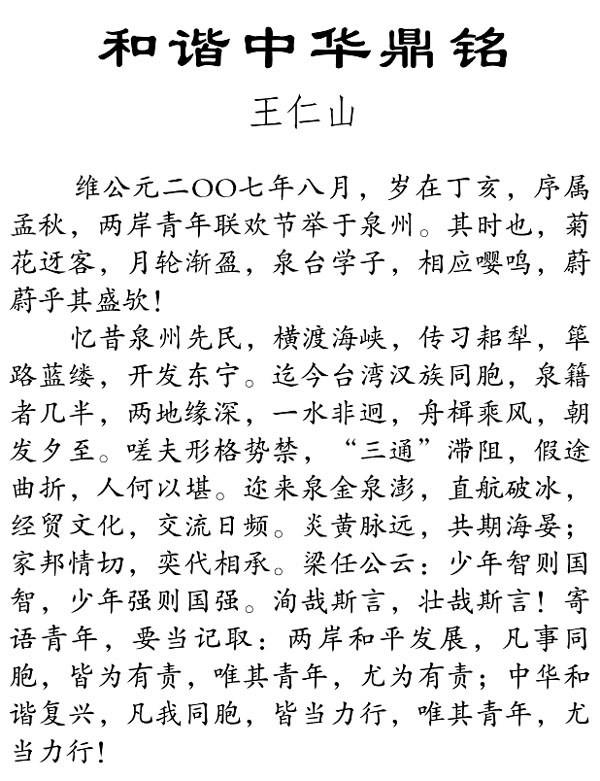 和谐中华鼎铭
王仁山
维公元二〇〇七年八月，岁在丁亥，序属
孟秋，两岸青年联欢节举于泉州。其时也，菊
花迓客，月轮渐盈，泉台学子，相应嘤鸣，蔚
蔚乎其盛欤！
忆昔泉州先民，横渡海峡，传习耜犁，筚
路蓝缕，开发东宁。迄今台湾汉族同胞，泉籍
者几半，两地缘深，一水非迥，舟楫乘风，朝
发夕至。嗟夫形格势禁，“三通”滞阻，假途
曲折，人何以堪。迩来泉金泉澎，直航破冰，
经贸文化，交流日频。炎黄脉远，共期海晏；
家邦情切，奕代相承。梁任公云：少年智则国
智，少年强则国强。洵哉斯言，壮哉斯言！寄
语青年，要当记取：两岸和平发展，凡事同
胞，皆为有责，唯其青年，尤为有责；中华和
谐复兴，凡我同胞，皆当力行，唯其青年，尤
当力行！